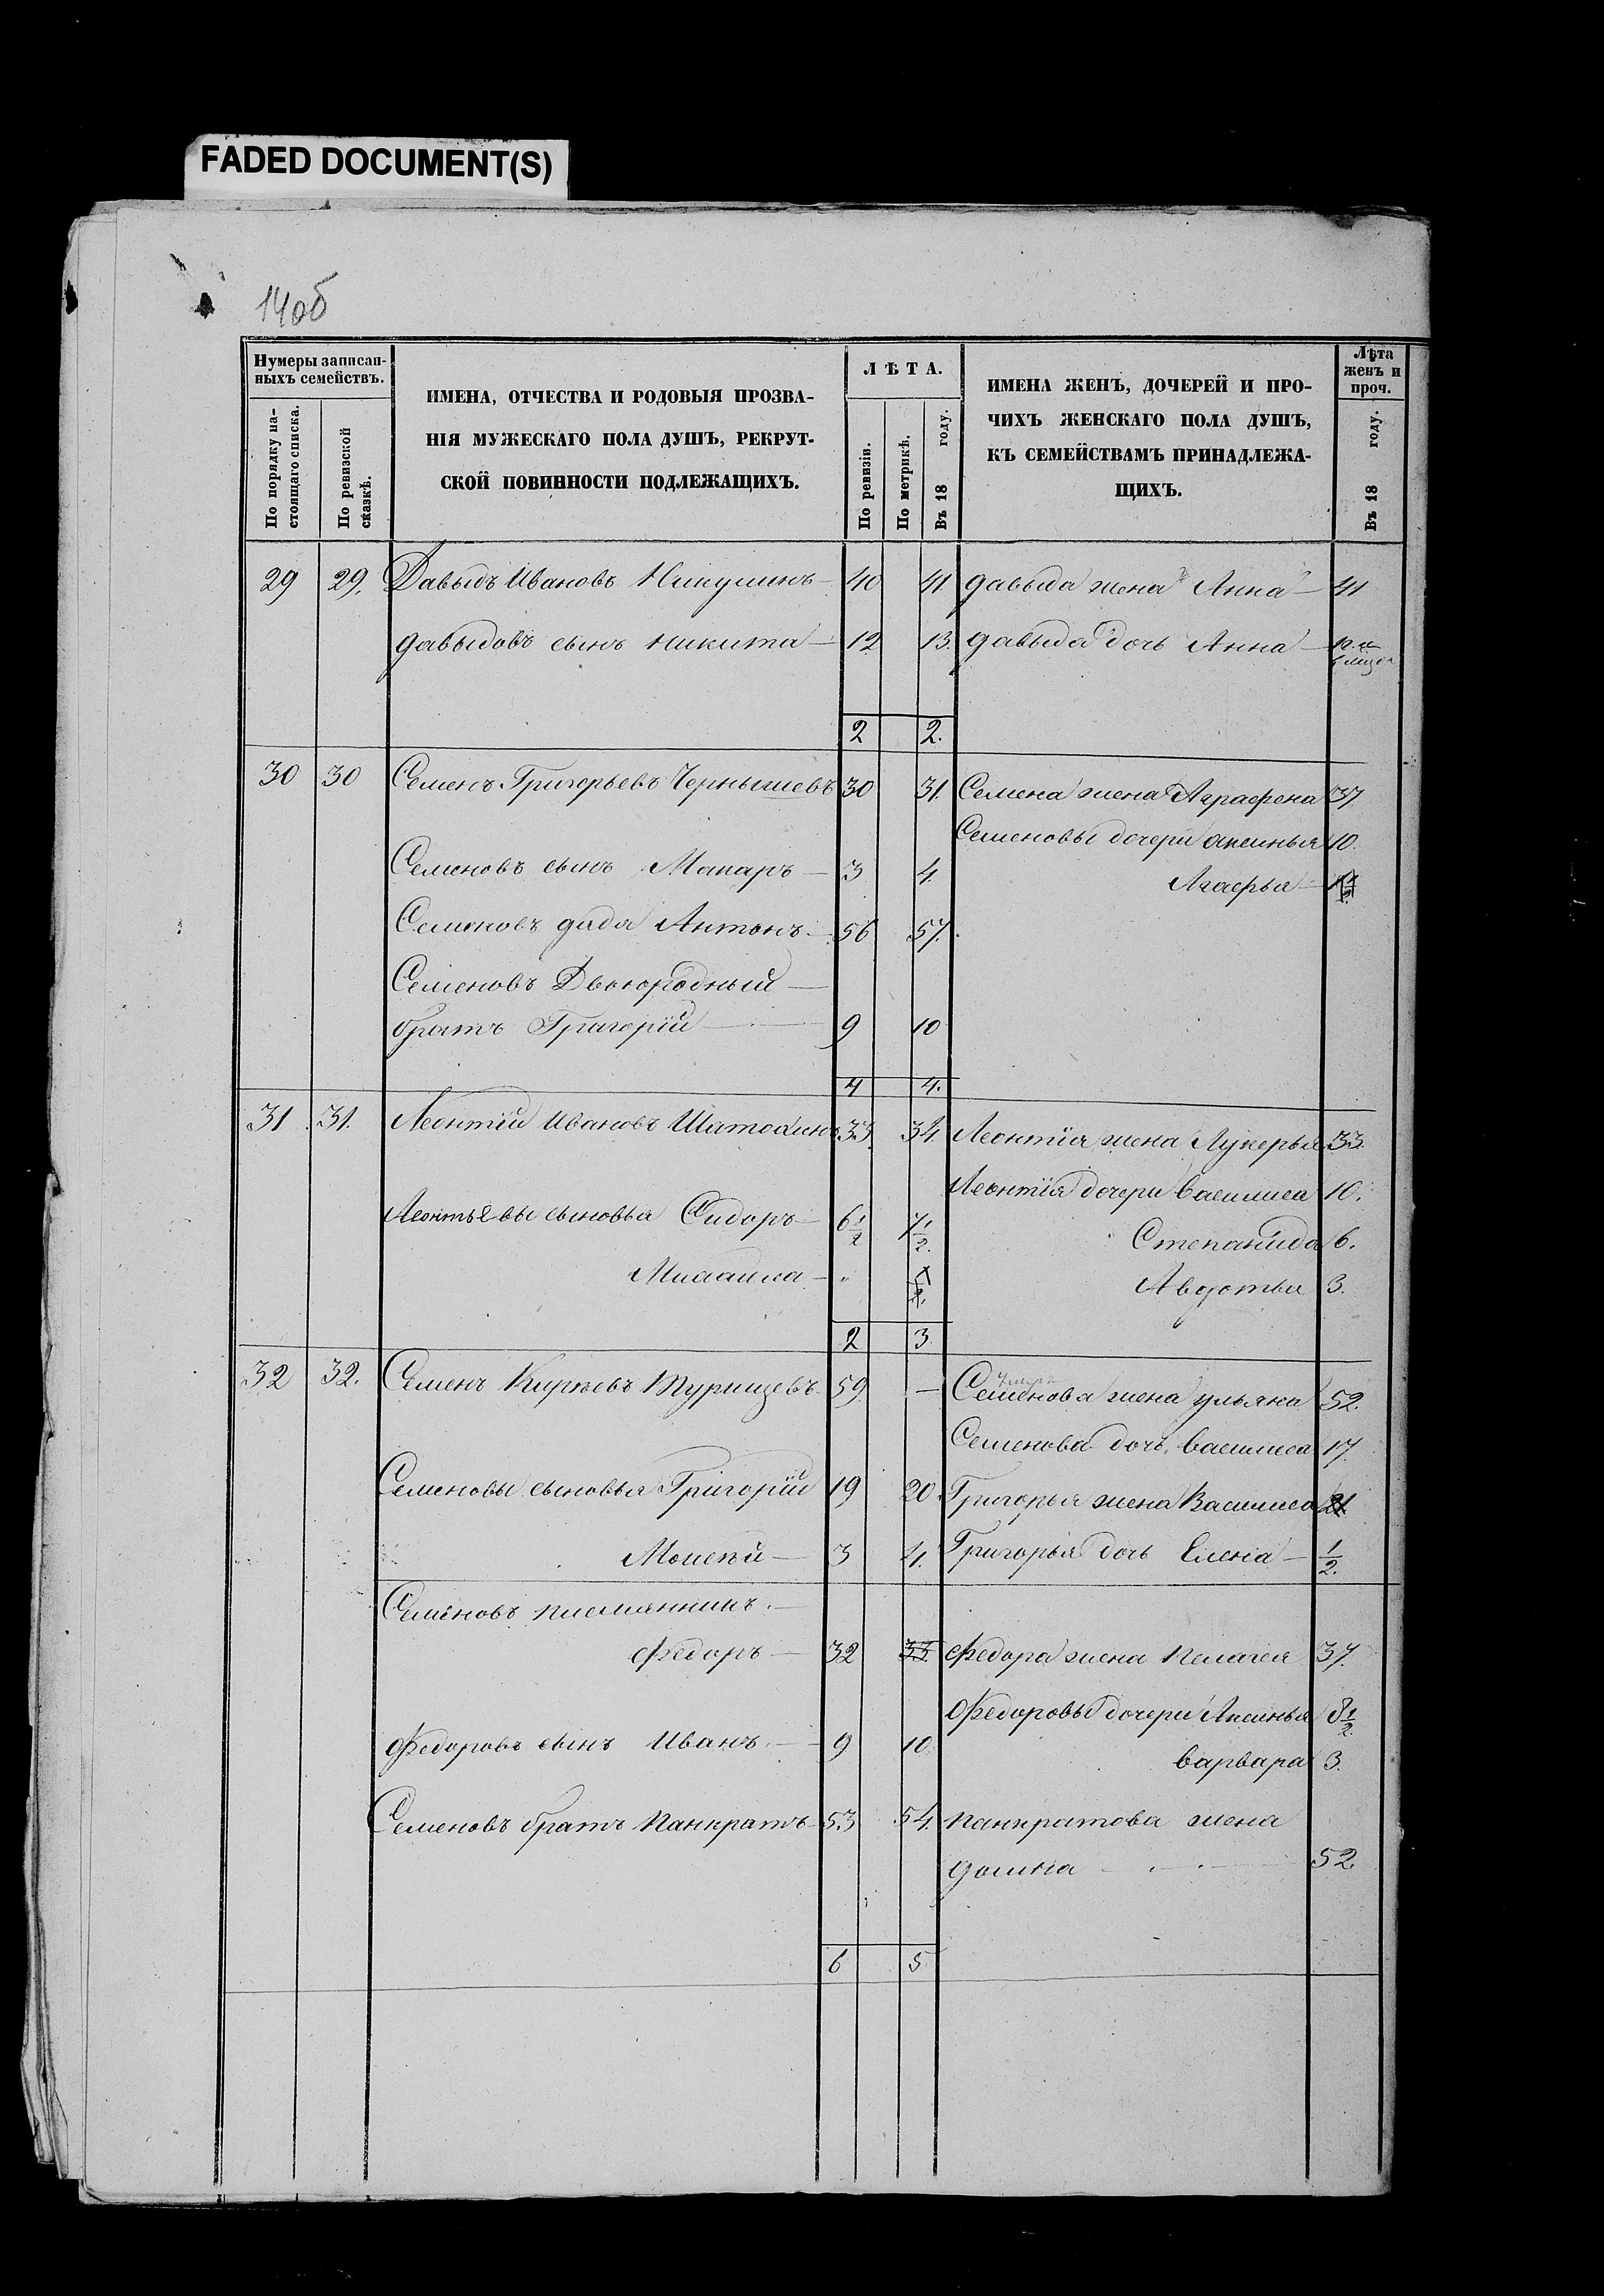 FADED DOCUMENT(S)
14об
Нумеры записан-
ныхъ семействъ.
По порядку на-
стоящаго списка.
По ревизской
сказкѣ.
ИМЕНА, ОТЧЕСТВА И РОДОВЫЯ ПРОЗВА-
НІЯ МУЖЕСКАГО ПОЛА ДУШЪ, РЕКРУТ-
СКОЙ ПОВИННОСТИ ПОДЛЕЖАЩИХЪ.
ЛѢТА.
По ревизіи.
По метрикѣ.
Въ 18 году.
ИМЕНА ЖЕНЪ, ДОЧЕРЕЙ И ПРО-
ЧИХЪ ЖЕНСКАГО ПОЛА ДУШЪ,
КЪ СЕМЕЙСТВАМЪ ПРИНАДЛЕЖА-
ЩИХЪ.
Лѣта
женъ и
проч.
Въ 18 году.
29 29. Давыдъ Ивановъ Никулинъ 40 41 давыда жена Анна 41
давыдовъ сынъ никита 12 13. давыда дочь Анна
2 2.
30 30 Семенъ Григорьевъ Чернышевъ 30 31. Семена жена Аграфена 37
Семеновы дочери аксинья 10.
Семеновъ сынъ Макаръ 3 4.
Агафья
Семеновъ дядя Антонъ 56 57.
Семеновъ Двоюродный
братъ Григорій 9 10
4 4.
31 31. Леонтій Ивановъ 33 34 Леонтія жена Лукерья 33.
Леонтія дочери василиса 10.
Леонтьевы сыновья Сидоръ 6 1/2 7 1/2.
Степанида 6.
Михаила
Авдотья 3.
2 3
32 32. Семенъ Кирѣевъ Турищевъ 59 — Семенова жена ульяна 52.
Семенова дочь василиса 17.
Семеновы сыновья Григорій 19 20. Григорья жена Василиса 21
Моисей 3 4. Григорья дочь Елена 1/2.
Семеновъ племянникъ
Федоръ 32 33. Федора жена пелагея 37.
Федоровы дочери Аксинья 8 1/2
Федоровъ сынъ Иванъ 9 10
варвара 3.
Семеновъ братъ панкратъ 53 54. панкратова жена
домна 52.
6 5